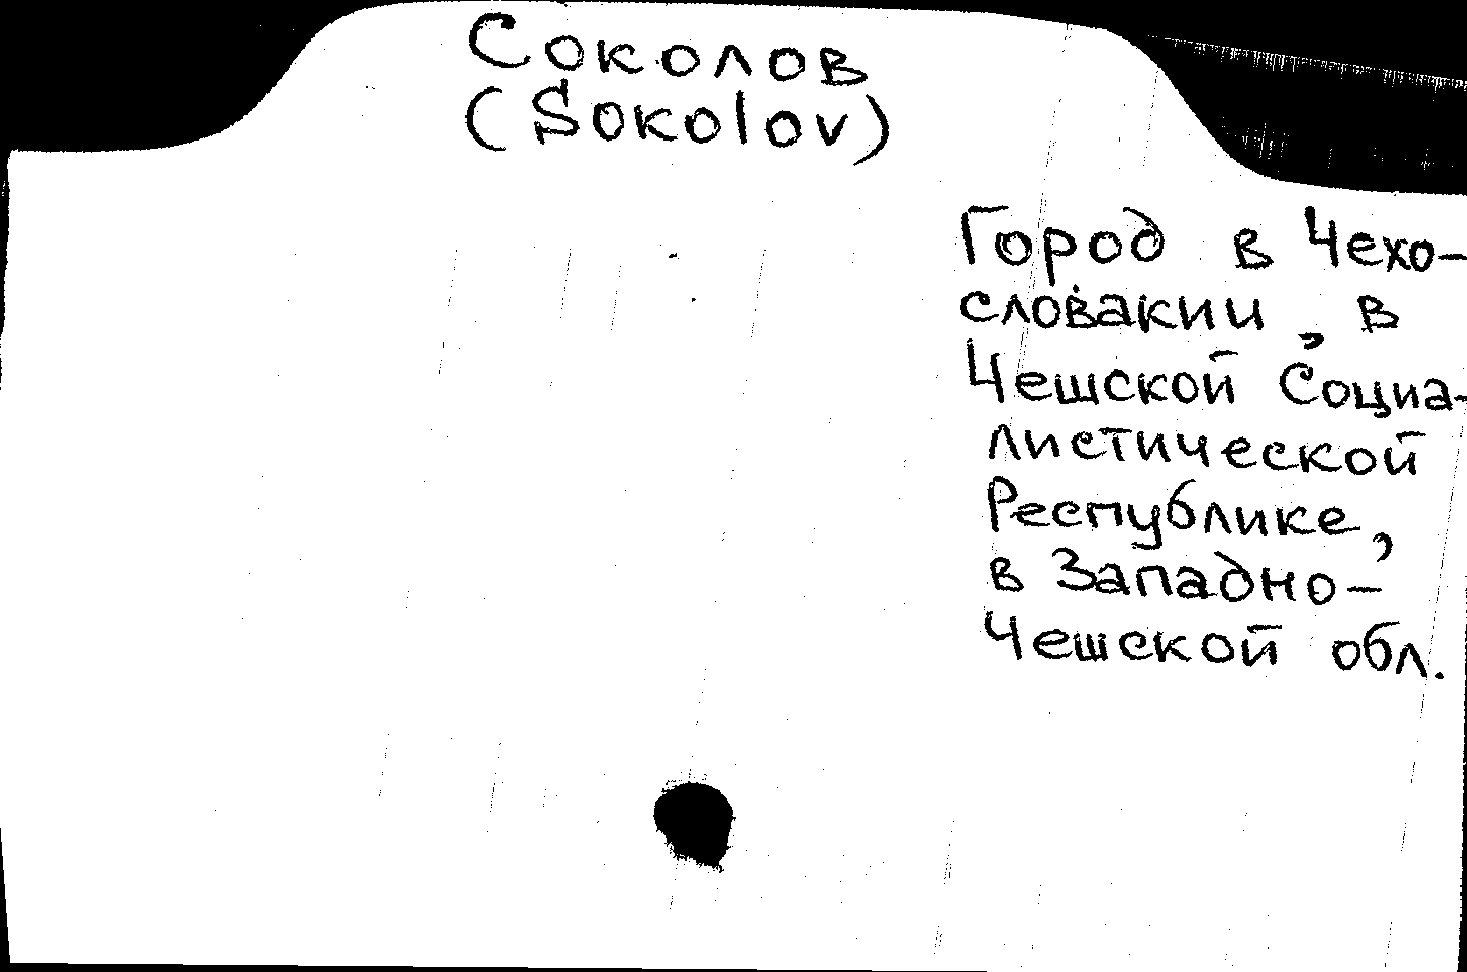 Соколов
(Sokolov)
Город в Чехо-
словакии, в
Чешской Социа-
листической
Республике,
в Западно-
Чешской обл.